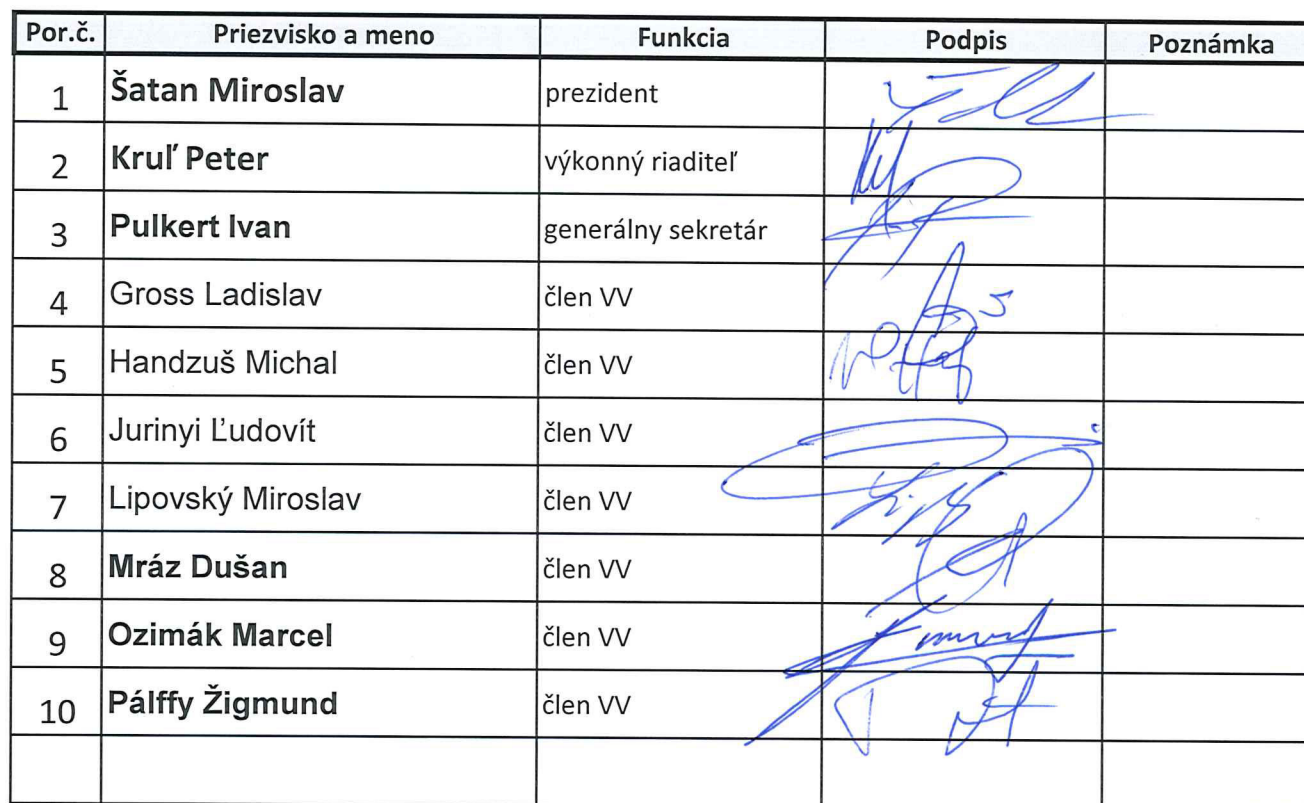 Por.č. Priezvisko a meno Funkcia Podpis Poznámka
1 Šatan Miroslav prezident
2 Kruľ Peter výkonný riaditeľ
3 Pulkert Ivan generálny sekretár
4 Gross Ladislav člen VV
5 Handzuš Michal člen VV
6 Jurinyi Ľudovít člen VV
7 Lipovský Miroslav člen VV
8 Mráz Dušan člen VV
9 Ozimák Marcel člen VV
10 Pálffy Žigmund člen VV